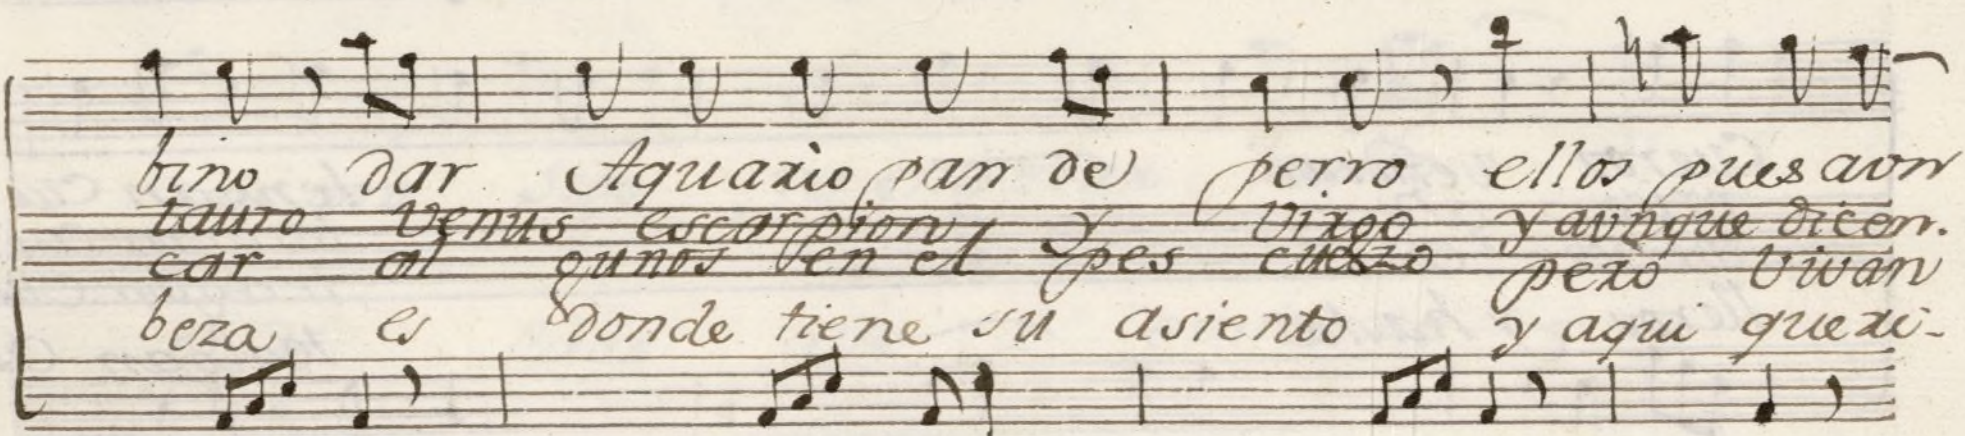 bino dar Aquario pan de perro ellos pues aun
tauro Venus escorpion y Virgo y aunque dicen.
car al gunos en el pes cuezo pero Vivan
beza es donde tiene su asiento y aqui queri-